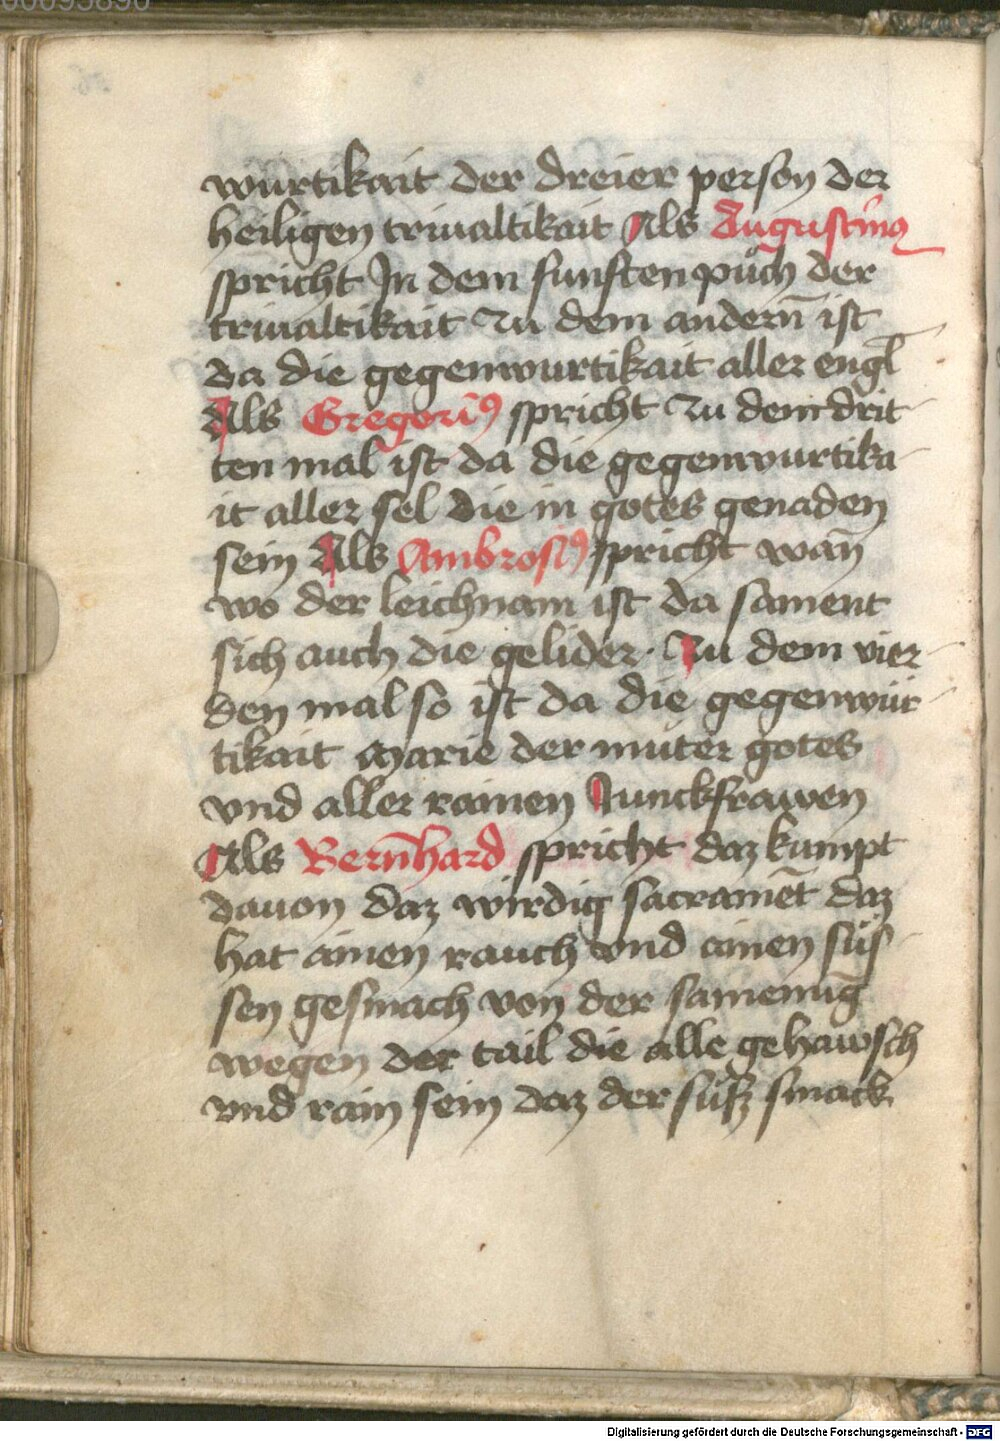 00095890
wurtikait der dreier person der
heiligen triualtikait Als Augustin9
spricht In dem funften puͦch der
triualtikait Zu dem andern̄ ist
da die gegenwurtikait aller engl̄
Als Gregori9 spricht Zu dem drit-
ten mal ist da die gegenwurtika-
it aller sel die in gotes genaden
sein Als Ambrosi9 spricht wan̄
wo der leichnam ist da sament
sich auch die gelider. Zu dem vier-
den mal so ist da die gegenwür-
tikait Marie der muter gotes
vnd aller rainen Junckfrawen
Als Bern̄hard spricht daz kumpt
dauon daz wirdig sacramēt daz
hat ainen rauch vnd ainen süs-
sen gesmach von der samenūg
wegen der tail die alle gehawsch
vnd rain sein daz der süsz smack
Digitalisierung gefördert durch die Deutsche Forschungsgemeinschaft - DFG